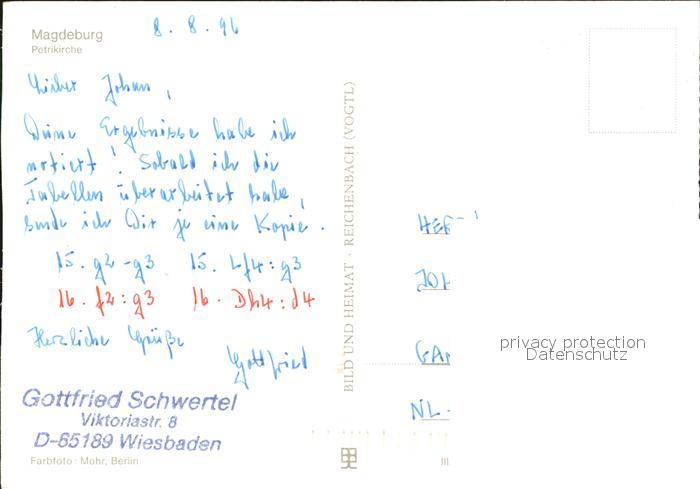 8. 8. 96
Magdeburg
Petrikirche
Lieber Johan,
Deine Ergebnisse habe ich
notiert! Sobald ich die
Tabellen überarbeitet habe,
sende ich Dir je eine Kopie.
15. g2-g3 15. Lf4:g3
16. f2:g3 16. Dh4:d4
Herzliche Grüße
Gottfried
Gottfried Schwertel
Viktoriastr. 8
D-65189 Wiesbaden
Farbfoto: Mohr, Berlin
BILD UND HEIMAT · REICHENBACH (VOGTL)
HER
JOH
GA
NL-
privacy protection
Datenschutz
III